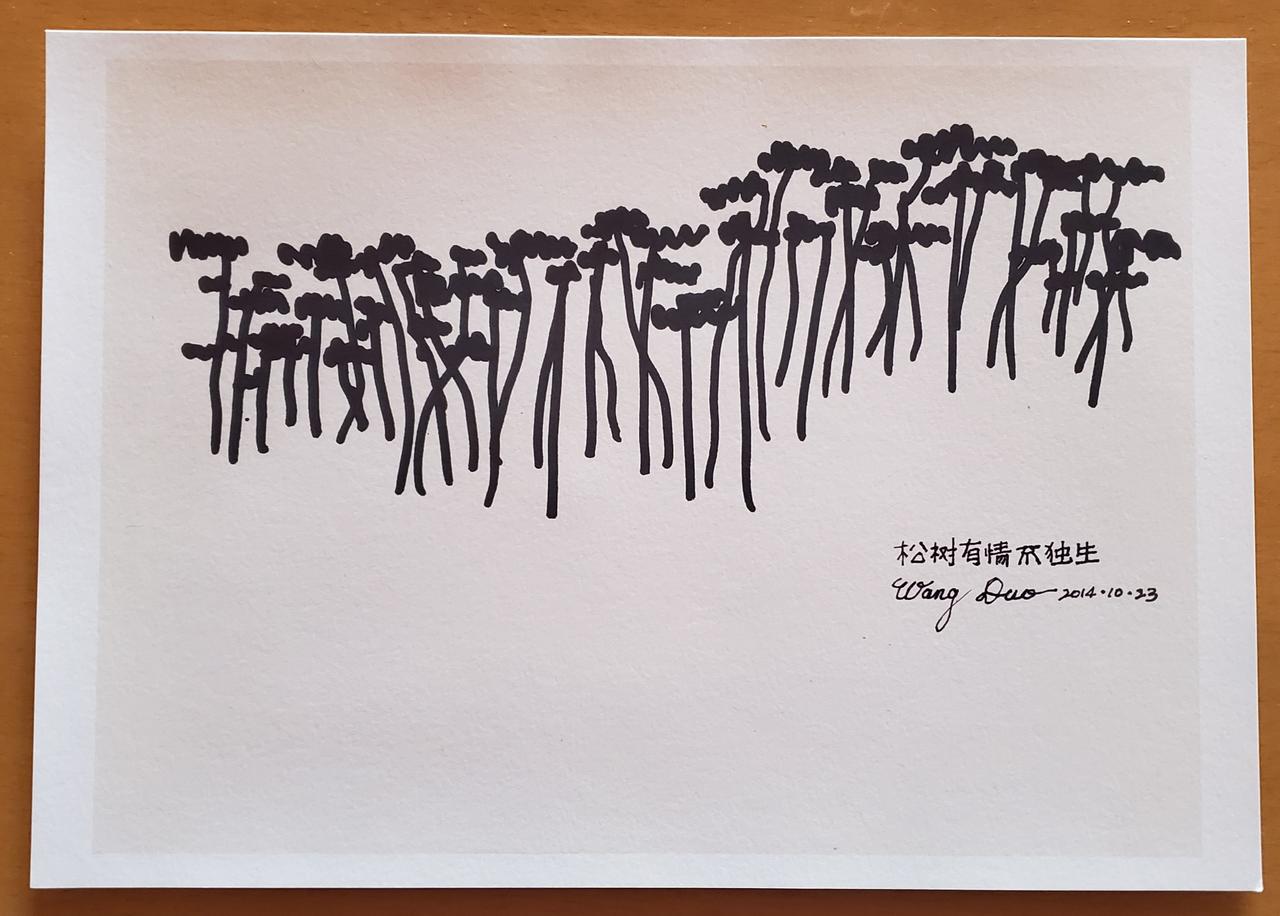 松树有情不独生
Wang Duo 2014·10·23